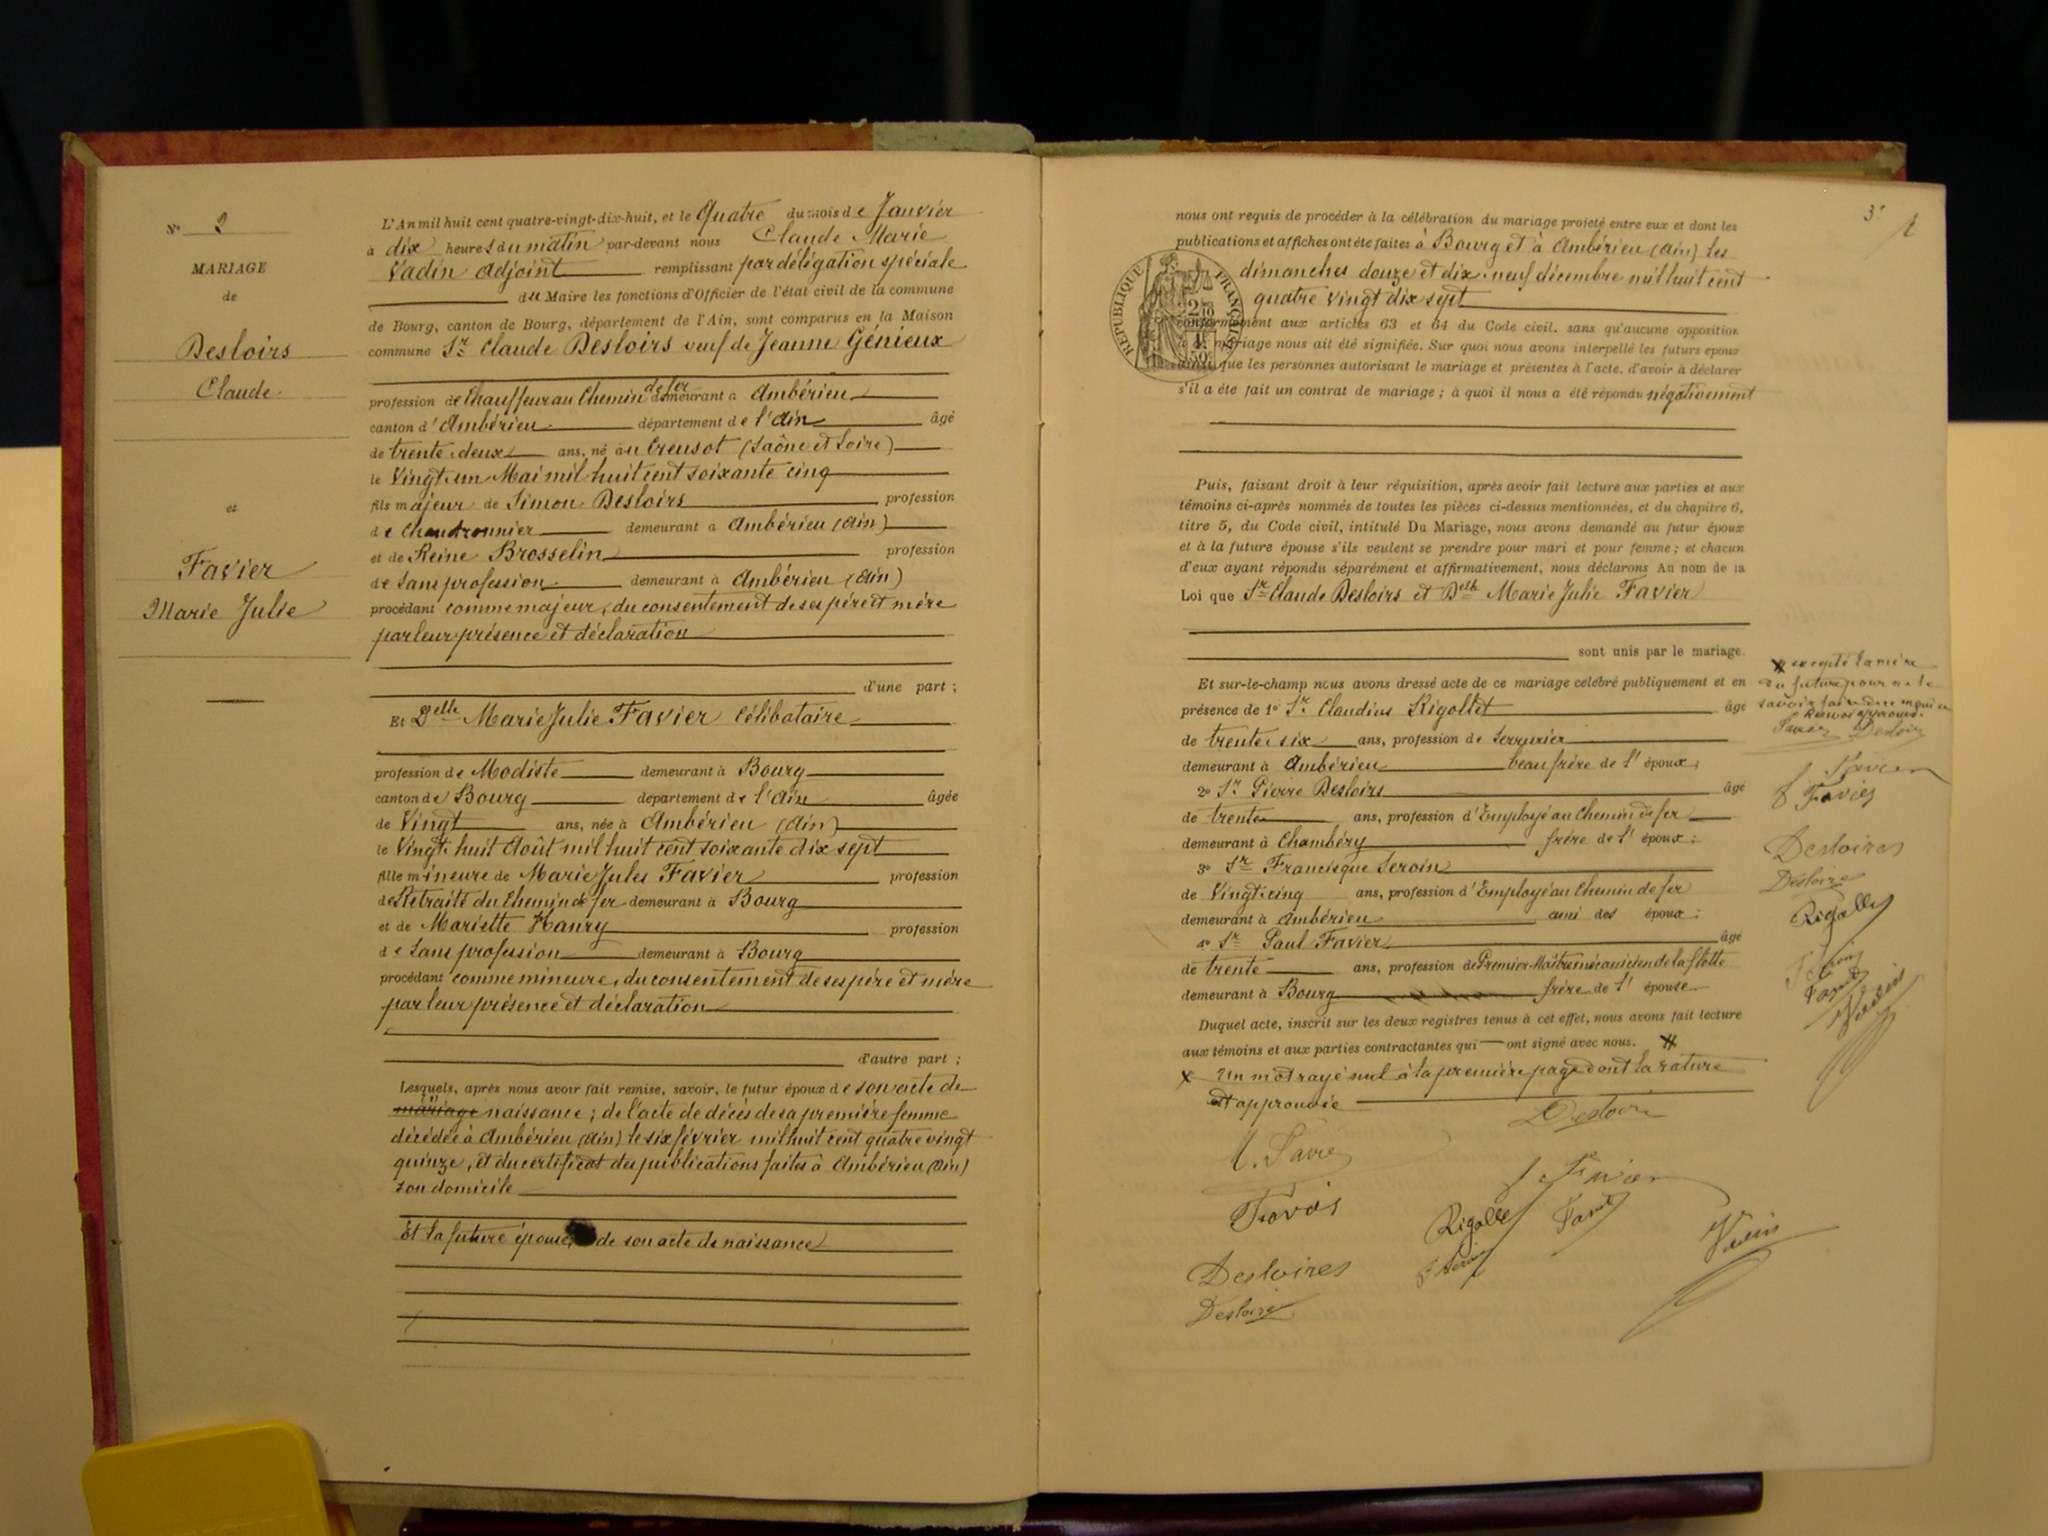 N° 2
MARIAGE
de
Desloirs
Claude
et
Favier
Marie Julie
L'An mil huit cent quatre-vingt-dix-huit, et le Quatre du mois de Janvier
à dix heures du matin par-devant nous Claude Marie
Vadin adjoint remplissant par délégation spéciale
du Maire les fonctions d'Officier de l'état civil de la commune
de Bourg, canton de Bourg, département de l'Ain, sont comparus en la Maison
commune Sr Claude Desloirs veuf de Jeanne Génieux
profession de Chauffeur au Chemin de fer demeurant à Ambérieu
canton d'Ambérieu département de l'Ain âgé
de trente deux ans, né au Creusot (Saône et Loire)
le Vingt un Mai mil huit cent soixante cinq
fils majeur de Simon Desloirs profession
de Chaudronnier demeurant à Ambérieu (Ain)
et de Reine Brosselin profession
de Sans profession demeurant à Ambérieu (Ain)
procédant comme majeur, du consentement de ses père et mère
par leur présence et déclaration
d'une part ;
Et Delle Marie Julie Favier Célibataire
profession de Modiste demeurant à Bourg
canton de Bourg département de l'Ain âgée
de Vingt ans, née à Ambérieu (Ain)
le Vingt huit Août mil huit cent soixante dix sept
fille mineure de Marie Jules Favier profession
de Retraité du Chemin de fer demeurant à Bourg
et de Mariette Hanry profession
de Sans profession demeurant à Bourg
procédant comme mineure, du consentement de ses père et mère
par leur présence et déclaration
d'autre part ;
Lesquels, après nous avoir fait remise, savoir, le futur époux de son acte de
mariage naissance ; de l'acte de décès de sa première femme
décédée à Ambérieu (Ain) le six février mil huit cent quatre vingt
quinze, et du certificat des publications faites à Ambérieu (Ain)
son domicile
Et la future épouse, de son acte de naissance
3
nous ont requis de procéder à la célébration du mariage projeté entre eux et dont les
publications et affiches ont été faites à Bourg et à Ambérieu (Ain) les
dimanches douze et dix-neuf décembre mil huit cent
quatre vingt dix sept
RÉPUBLIQUE FRANÇAISE
conformément aux articles 63 et 64 du Code civil, sans qu'aucune opposition
mariage nous ait été signifiée. Sur quoi nous avons interpellé les futurs époux
que les personnes autorisant le mariage et présentes à l'acte, d'avoir à déclarer
s'il a été fait un contrat de mariage ; à quoi il nous a été répondu négativement
Puis, faisant droit à leur réquisition, après avoir fait lecture aux parties et aux
témoins ci-après nommés de toutes les pièces ci-dessus mentionnées, et du chapitre 6,
titre 5, du Code civil, intitulé Du Mariage, nous avons demandé au futur époux
et à la future épouse s'ils veulent se prendre pour mari et pour femme ; et chacun
d'eux ayant répondu séparément et affirmativement, nous déclarons Au nom de la
Loi que Sr Claude Desloirs et Delle Marie Julie Favier
sont unis par le mariage.
Et sur-le-champ nous avons dressé acte de ce mariage célébré publiquement et en
présence de 1° Sr Claudius Rigollet âgé
de trente six ans, profession de Serrurier
demeurant à Ambérieu beau frère de l'époux ;
2° Sr Pierre Desloirs âgé
de trente ans, profession d'Employé au Chemin de fer
demeurant à Chambéry frère de l'époux ;
3° Sr Francisque Seroin
de Vingt-cinq ans, profession d'Employé au Chemin de fer
demeurant à Ambérieu ami des époux ;
4° Sr Paul Favier âgé
de trente ans, profession de Premier-Maître mécanicien de la flotte
demeurant à Bourg frère de l'épouse
Duquel acte, inscrit sur les deux registres tenus à cet effet, nous avons fait lecture
aux témoins et aux parties contractantes qui ont signé avec nous.
x Un mot rayé nul à la première page dont la rature
est approuvée
Desloires
Desloires
Rigollet
Favier
Vadin
x excepté la mère
du futur pour ne le
savoir faire de ce requise
Renvoi approuvé.
Favier Desloirs
Favier
Desloires
Desloires
Rigollet
Vadin